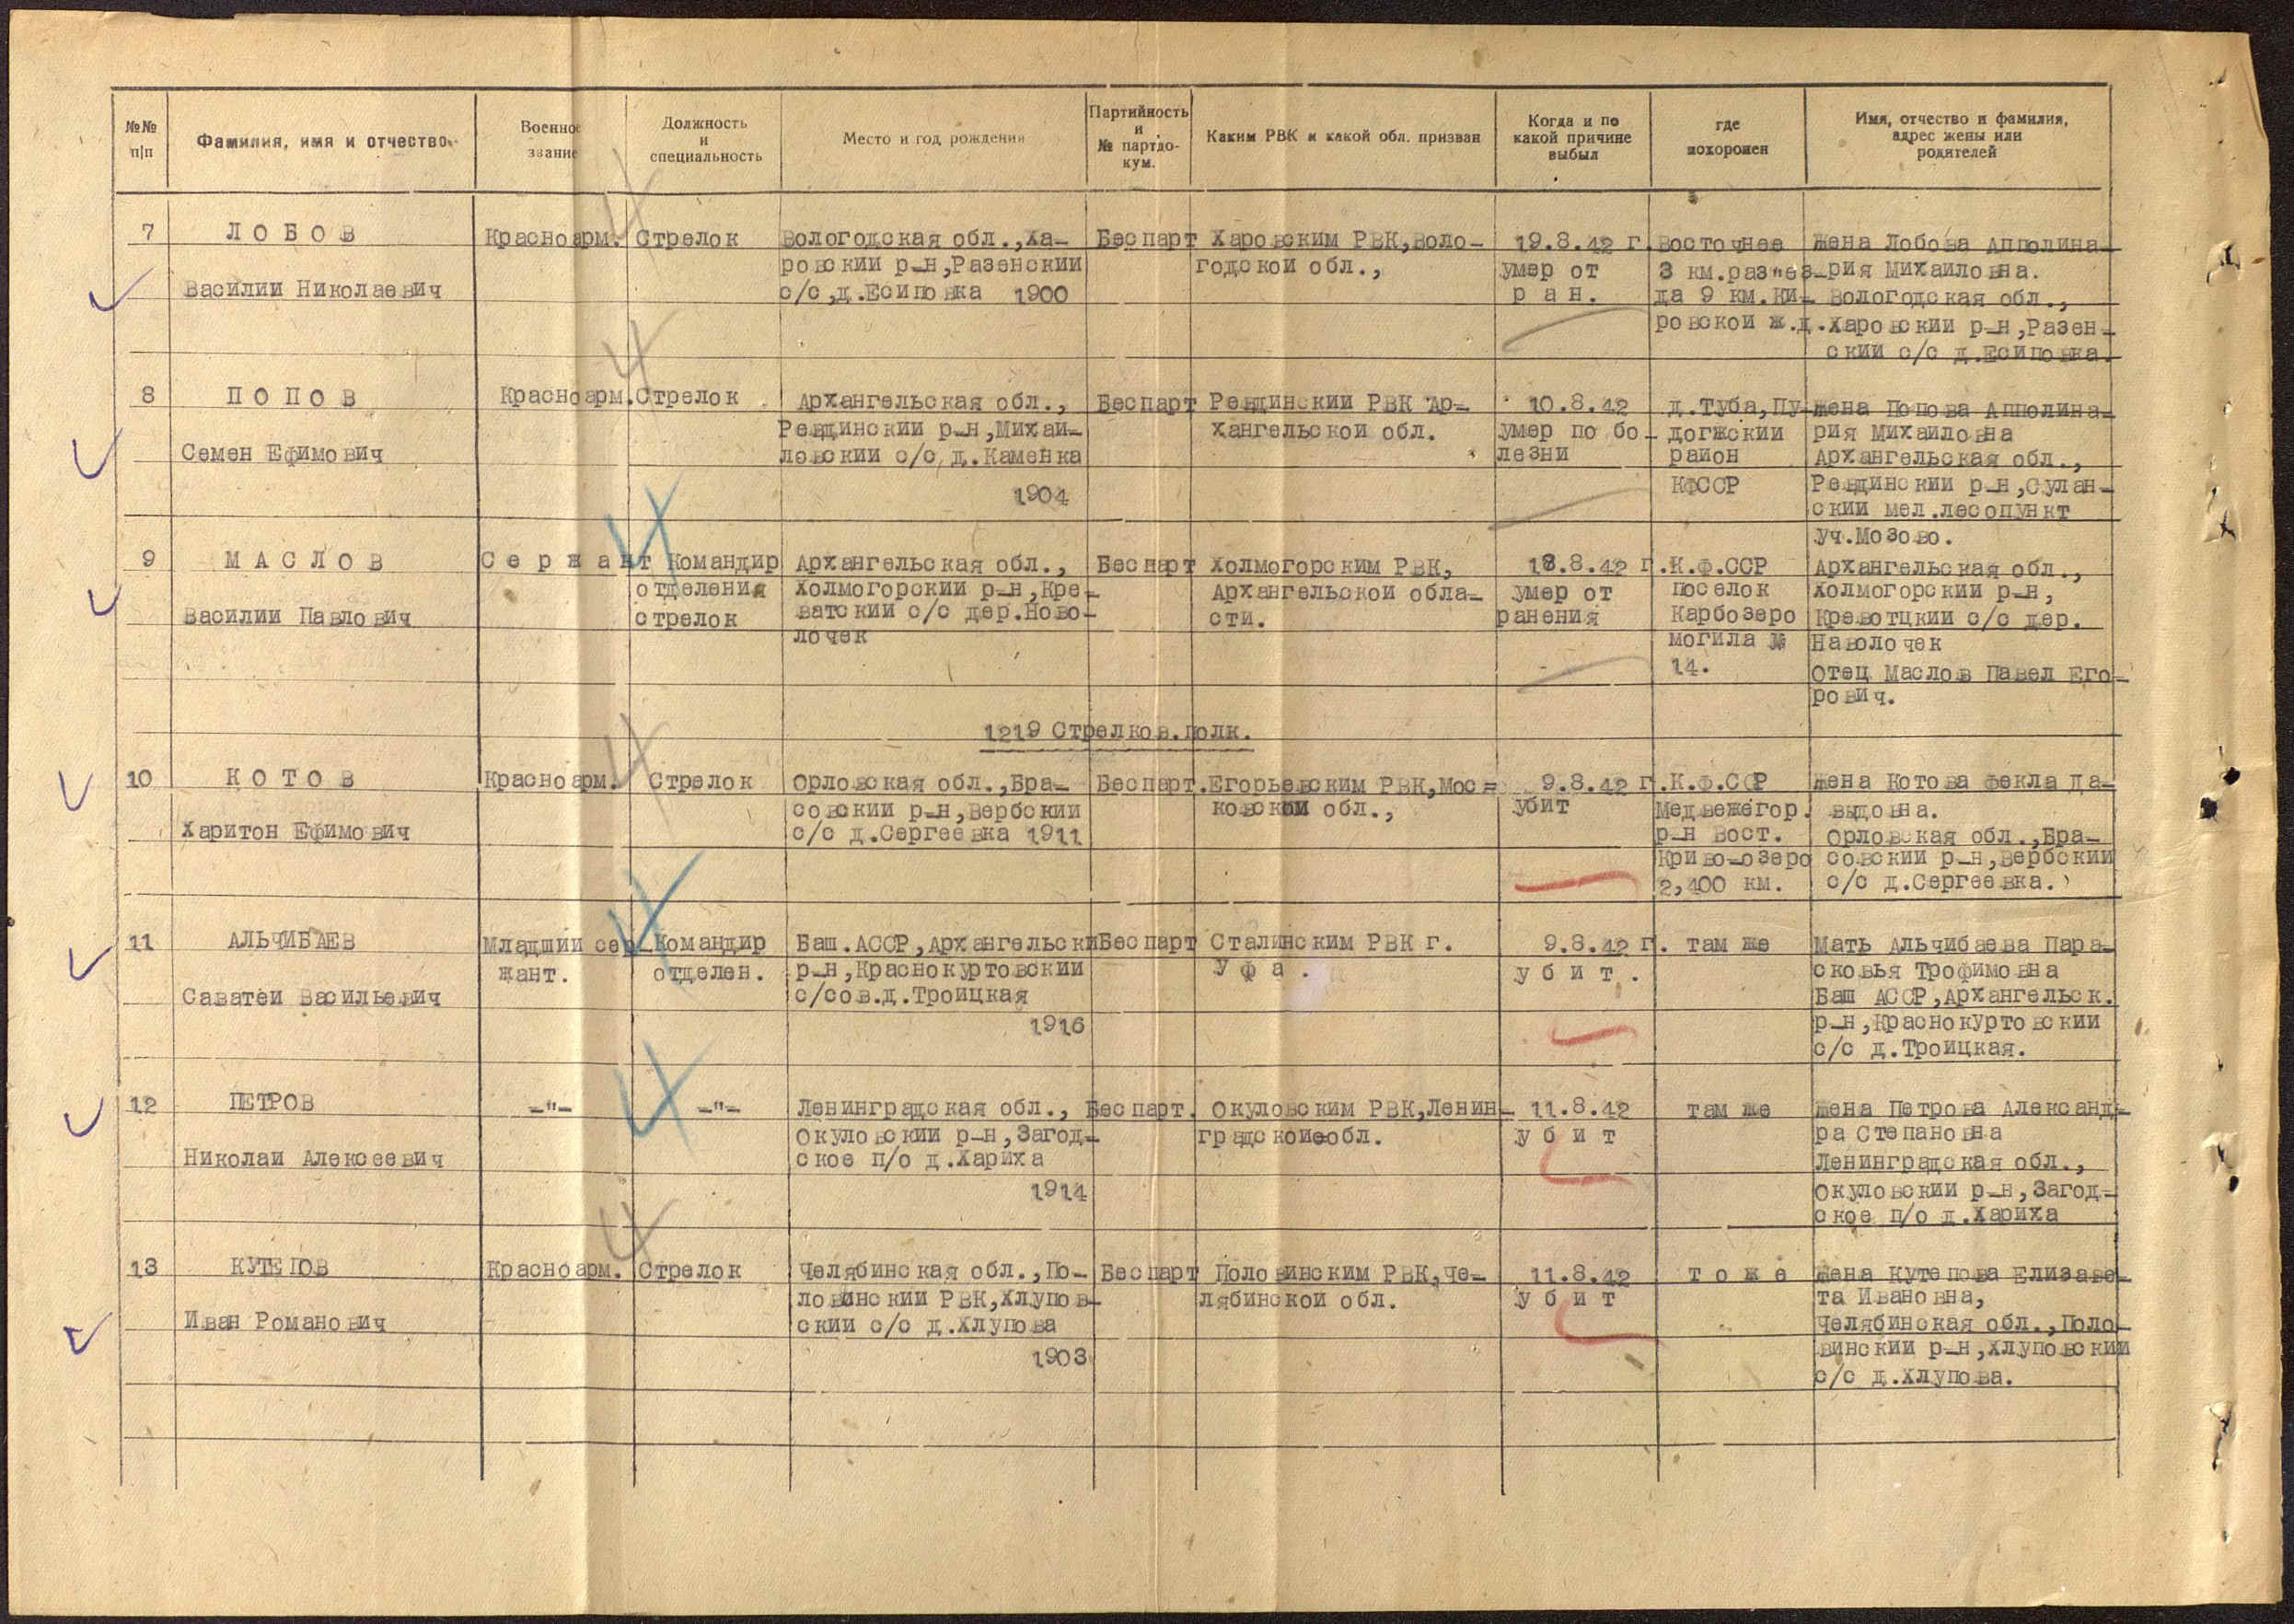 №№ п|п
Фамилия, имя и отчество
Военное звание
Должность и специальность
Место и год рождения
Партийность и № партдо-кум.
Каким РВК и какой обл. призван
Когда и по какой причине выбыл
где похоронен
Имя, отчество и фамилия, адрес жены или родителей
7
ЛОБОВ
Василии Николаевич
Красноарм.
Стрелок
Вологодская обл.,Ха-
ровскии р-н,Разенскии
с/с,д.Есиповка 1900
Беспарт
Харовским РВК,Воло-
годскои обл.,
19.8.42 г.
умер от
ран.
Восточнее
3 км.разъез-
да 9 км.Ки-
ровскои ж.д.
Жена Лобова Апполина-
рия Михаиловна.
Вологодская обл.,
Харовскии р-н,Разен-
скии с/с д.Есиповка.
8
ПОПОВ
Семен Ефимович
Красноарм.
Стрелок
Архангельская обл.,
Ревдинскии р-н,Михаи-
ловскии с/с д.Каменка
1904
Беспарт
Ревдинскии РВК Ар-
хангельскои обл.
10.8.42
умер по бо-
лезни
д.Туба,Пу-
догжскии
район
КФССР
Жена Попова Апполина-
рия Михаиловна
Архангельская обл.,
Ревдинскии р-н,Сулан-
скии мел.лесопункт
уч.Мозово.
9
МАСЛОВ
Василии Павлович
Сержант
Командир
отделения
стрелок
Архангельская обл.,
Холмогорскии р-н,Кре-
ватскии с/с дер.Ново-
лочек
Беспарт
Холмогорским РВК,
Архангельскои обла-
сти.
18.8.42 г.
умер от
ранения
К.Ф.ССР
поселок
Карбозеро
могила №
14.
Архангельская обл.,
Холмогорскии р-н,
Кревотцкии с/с дер.
Наволочек
Отец Маслов Павел Его-
рович.
1219 Стрелков.полк.
10
КОТОВ
Харитон Ефимович
Красноарм.
Стрелок
Орловская обл.,Бра-
совскии р-н,Вербскии
с/с д.Сергеевка 1911
Беспарт.
Егорьевским РВК,Мос-
ковскои обл.,
9.8.42 г.
убит
К.Ф.ССР
Медвежегор.
р-н Вост.
Криво-озеро
2,400 км.
Жена Котова Фекла Да-
выдовна.
Орловская обл.,Бра-
совскии р-н,Вербскии
с/с д.Сергеевка.
11
АЛЬЧИБАЕВ
Саватеи Васильевич
Младшии сер-
жант.
Командир
отделен.
Баш.АССР,Архангельски
р-н,Краснокуртовскии
с/сов.д.Троицкая
1916
Беспарт
Сталинским РВК г.
Уфа.
9.8.42 г.
убит.
там же
Мать Альчибаева Пара-
сковья Трофимовна
Баш АССР,Архангельск.
р-н,Краснокуртовскии
с/с д.Троицкая.
12
ПЕТРОВ
Николаи Алексеевич
-"-
-"-
Ленинградская обл.,
Окуловскии р-н,Загод-
ское п/о д.Хариха
1914
Беспарт.
Окуловским РВК,Ленин-
градскои обл.
11.8.42
убит
там же
Жена Петрова Александ-
ра Степановна
Ленинградская обл.,
Окуловскии р-н,Загод-
ское п/о д.Хариха
13
КУТЕПОВ
Иван Романович
Красноарм.
Стрелок
Челябинская обл.,По-
ловинскии РВК,Хлупов-
скии с/с д.Хлупова
1903
Беспарт
Половинским РВК,Че-
лябинскои обл.
11.8.42
убит
тоже
Жена Кутепова Елизаве-
та Ивановна,
Челябинская обл.,Поло-
винскии р-н,Хлуповскии
с/с д.Хлупова.